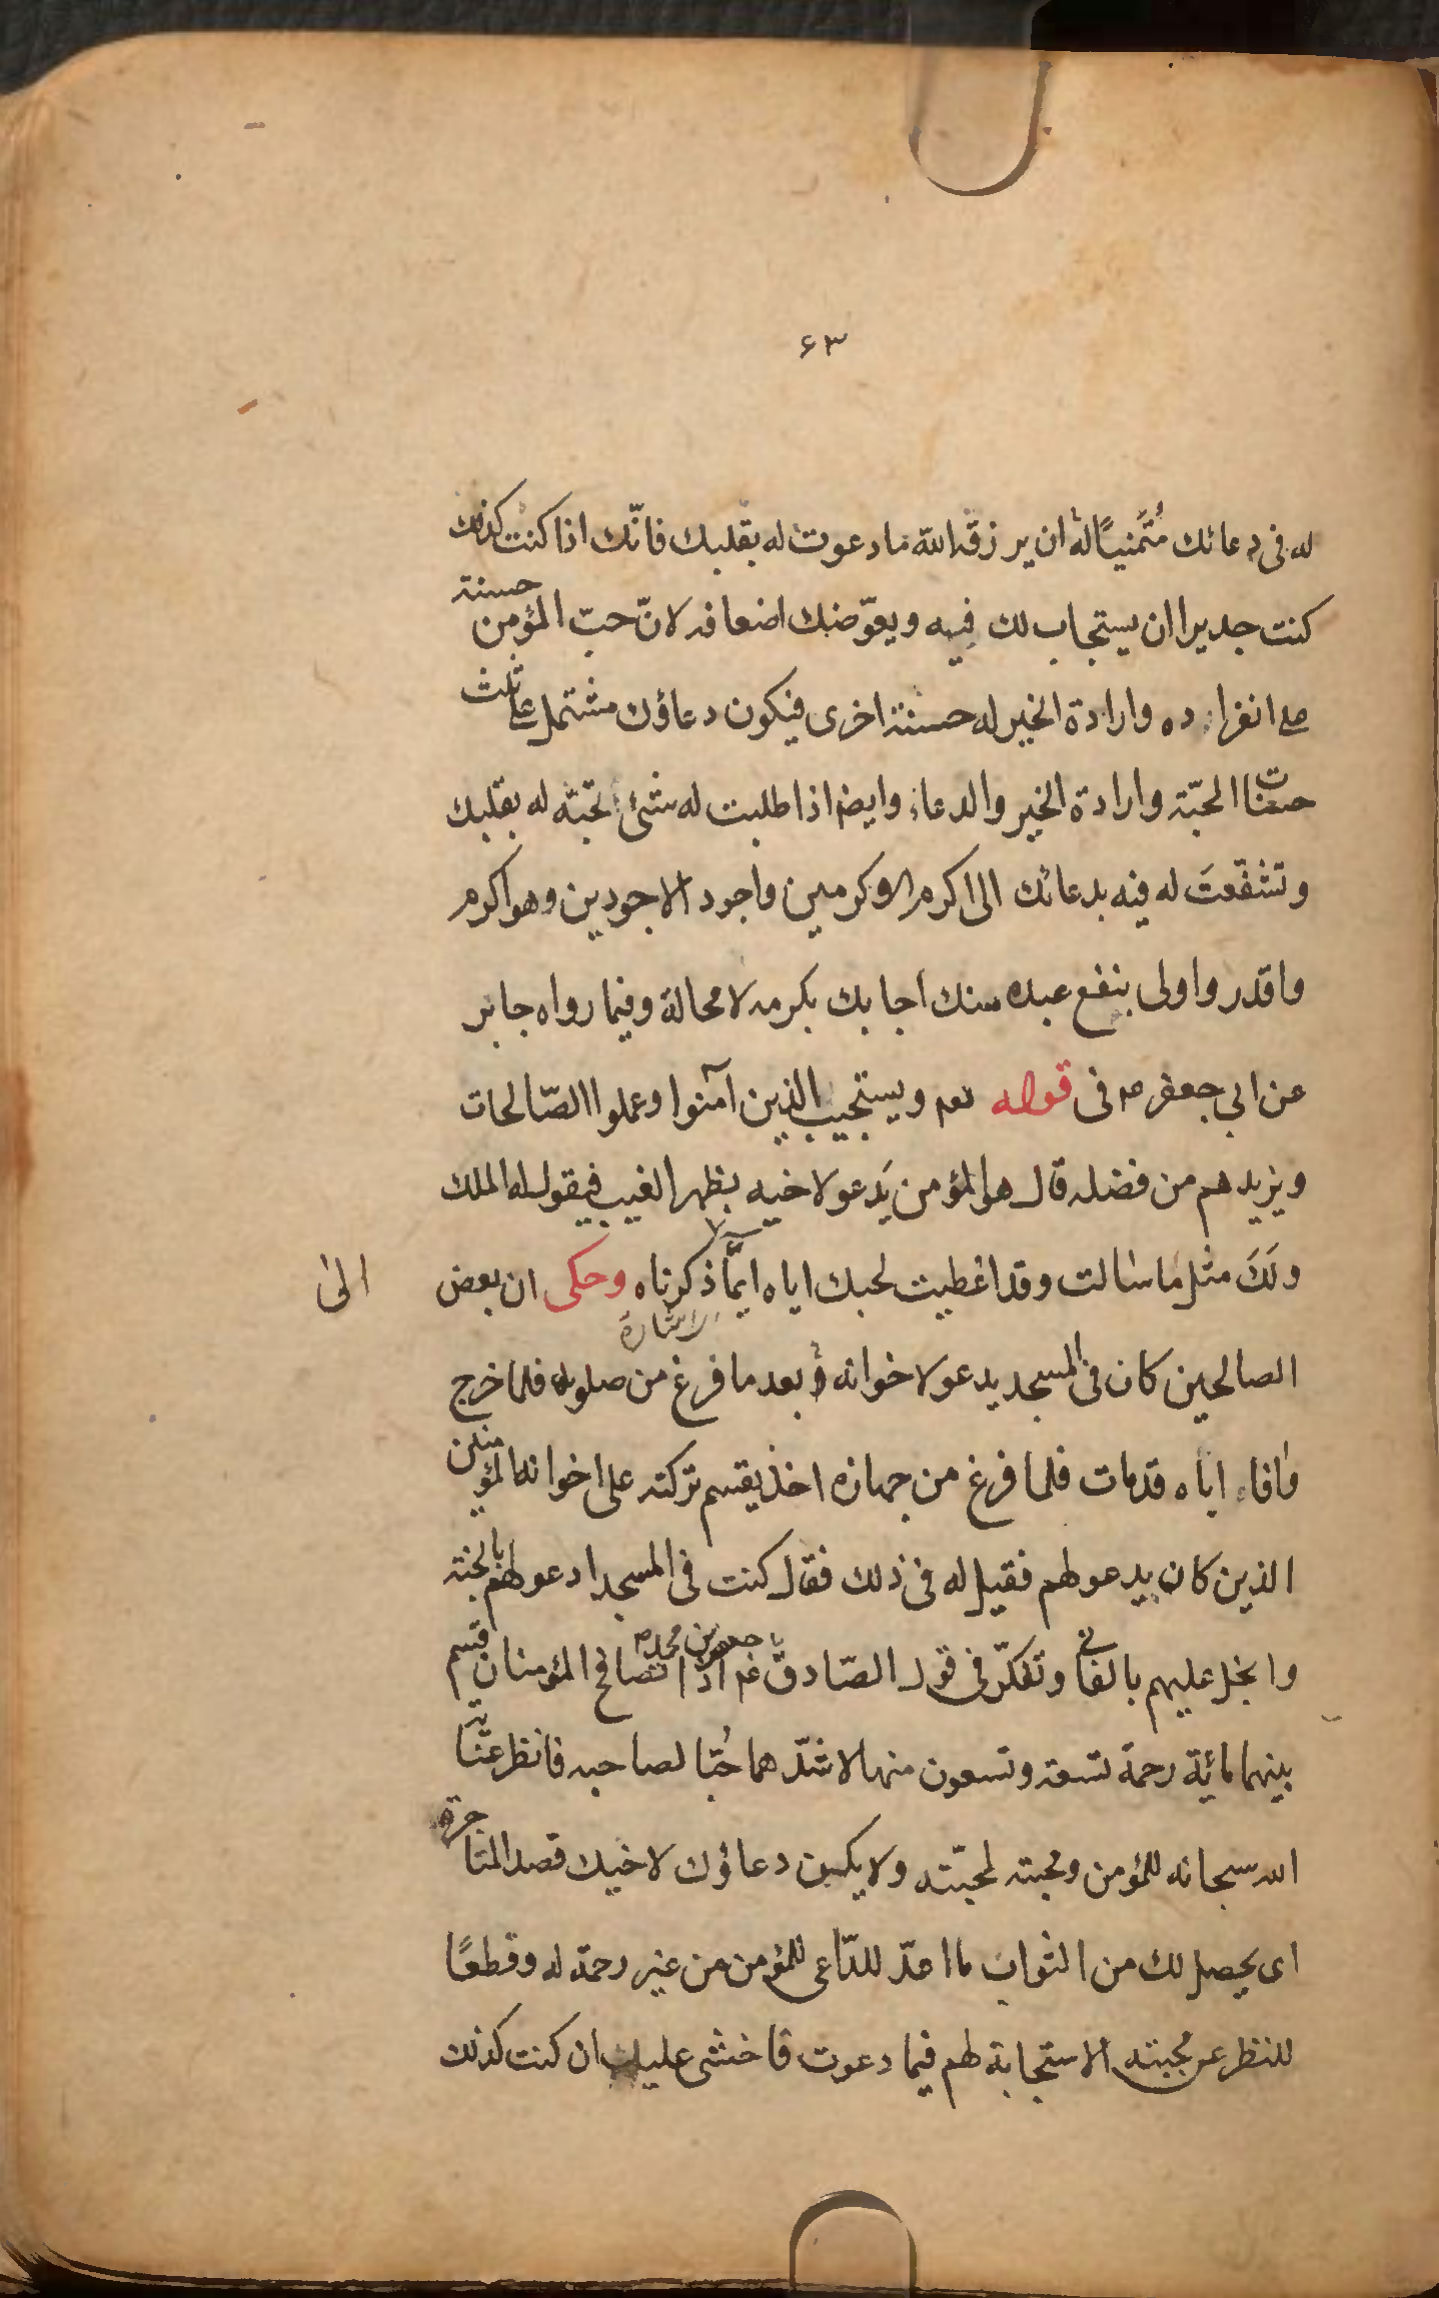 ۶۳
له فى دعائك مُتَمنيًا له ان يرزقه الله ما دعوت له بقلبك فانّك اذا كنت كذلك
كنت جديرا ان يستجاب لك فيه ويعوّضك اضعافه لانّ حبّ المؤمن حسنة
على انفراده وارادة الخير له حسنة اخرى فيكون دعاؤك مشتمل على ثلث
المحبّة وارادة الخير والدعاء وايضا اذا طلبت له شئ تحبّه له بقلبك
وتشفّعتَ له فيه بدعائك الى اكرم الاكرمين واجود الاجودين وهو اكرم
واقدر واولى بنفع عبده منك اجابك بكرمه لا محالة وفيما رواه جابر
عن ابي جعفر ع م فى قوله تعم ويستجيب الذين آمنوا وعملوا الصّالحات
ويزيدهم من فضله قال هو المؤمن يَدعو لاخيه بظهر الغيب فيقول له الملك
ولَكَ مثل ما سالت وقد اعطيت لحبك اياه ايمّا ذكرناه وحكى ان بعض
الى
اشارة
الصالحين كان فى المسجد يدعو لاخوانه بعد ما فرغ من صلوته فلما خرج
وافاء اباه قد مات فلما فرغ من جهازه اخذ يقسم تركته على اخوانه المؤمنين
الذين كان يدعو لهم فقيل له فى ذلك فقال كنت فى المسجد ادعو لهم بالجنة
وابخل عليهم بالفانى وتفكّر فى قول الصّادق جعفر بن محمد ع م اذا تصافح المؤمنان قسم
بينهما مائة رحمة تسعة وتسعون منها لاشدّهما حُبّا لصاحبه فانظر عناية
الله سبحانه للمؤمن ومحبته لمحبّته ولا يكن دعاؤك لاخيك قصد المتاجرة
اى يحصل لك من الثواب ما اعدّ للدّاعى للمؤمن من غير رحمة له وقطعًا
للنظر عن محبته الاستجابة لهم فيما دعوت فاخشى عليك ان كنت كذلك